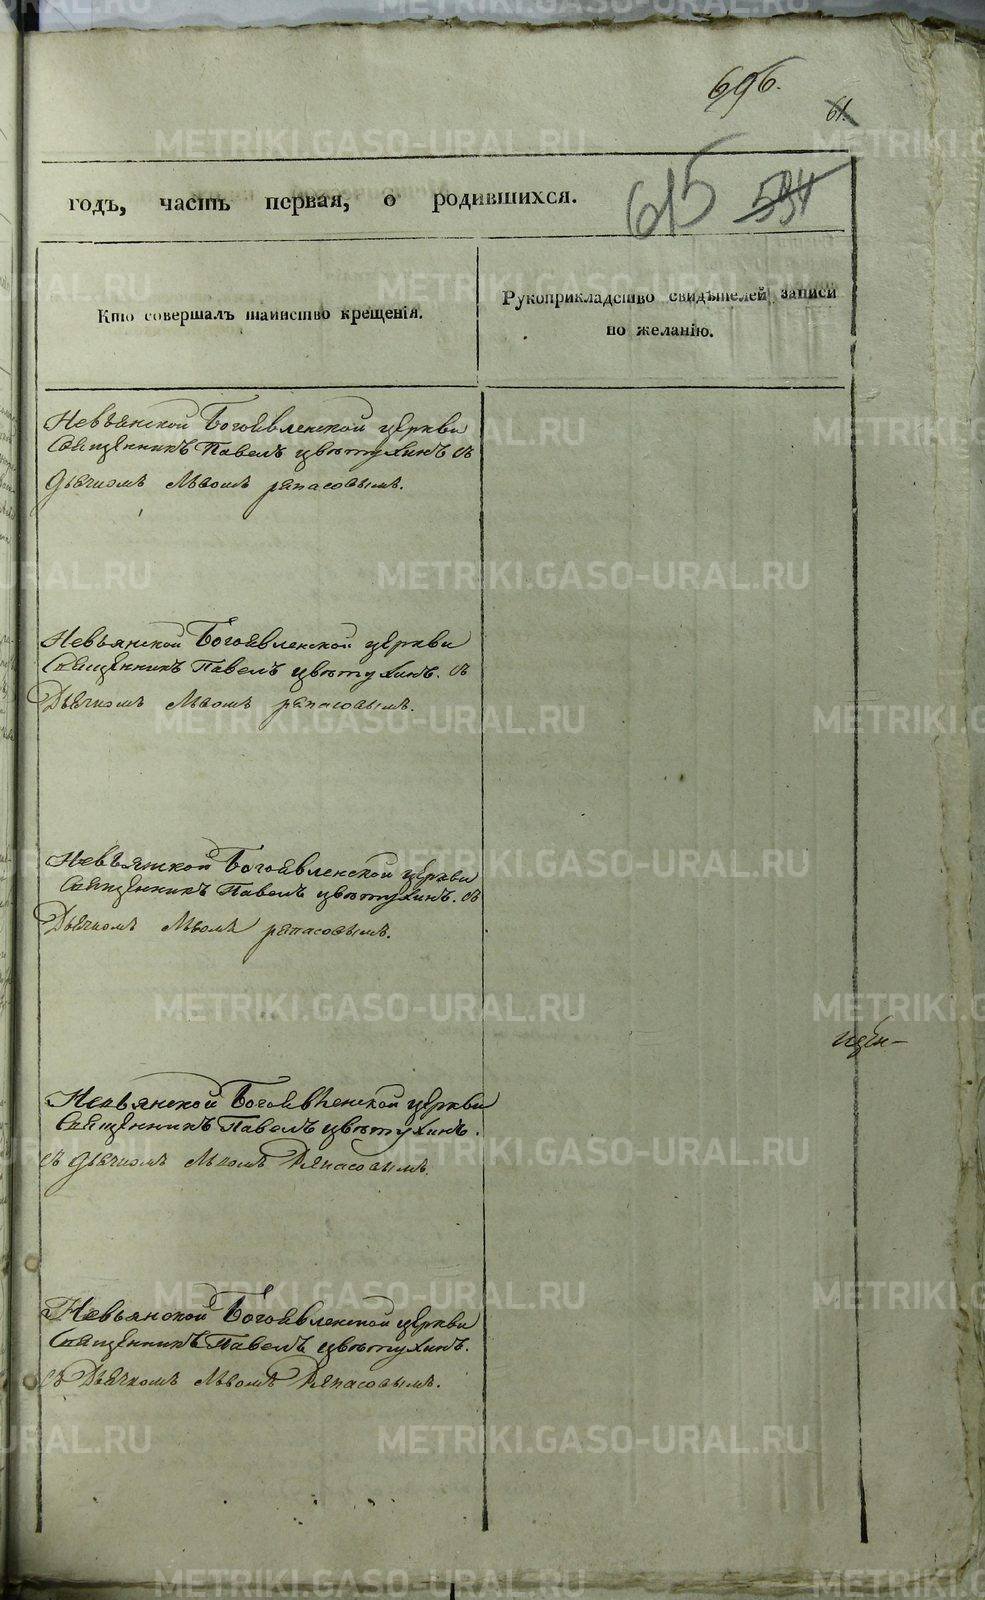 696.
61.
годъ, часть первая, о родившихся. 615 594
Кто совершалъ таинство крещенія.
Рукоприкладство свидѣтелей записи
по желанію.
Невьянской Богоявленской церкви
Священникъ Павелъ Цвѣтухинъ съ
Дьячкомъ Львомъ Репасовымъ.
Невьянской Богоявленской церкви
Священникъ Павелъ Цвѣтухинъ. съ
Дьячкомъ Львомъ Репасовымъ.
Невьянской Богоявленской церкви
Священникъ Павелъ Цвѣтухинъ. съ
Дьячкомъ Львомъ Репасовымъ.
Невьянской Богоявленской церкви
Священникъ Павелъ Цвѣтухинъ.
съ Дьячкомъ Львомъ Репасовымъ.
Невьянской Богоявленской церкви
Священникъ Павелъ Цвѣтухинъ.
съ Дьячкомъ Львомъ Репасовымъ.
METRIKI.GASO-URAL.RU